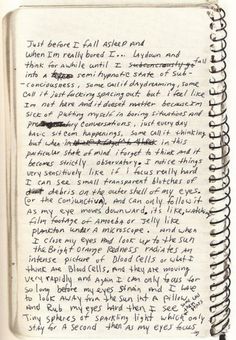 Just before I fall asleep and
when Im really bored I... laydown and
think for awhile until I subconciously fall
into a semi hypnotic state of sub-
conciousness, some call it daydreaming, some
call it just fucking spacing out but I feel like
Im not here and it doesnt matter because Im
sick of putting myself in boring situations and
conversations, just every day
basic sitcom happenings, some call it thinking
but when in this
particular state of mind I forget to think and it
becomes strictly observatory. I notice things
very sensitively like if I focus really hard
I can see small transparent blotches of
debris on the outer shell of my eyes.
(or the conjunctiva). and can only follow it
as my eye moves downward, its like watching
film footage of Amoeba or Jelly like
plankton under a microscope. And when
I close my eyes And look up to the sun
the Bright orange Redness radiates an
intense picture of Blood cells or what I
think are Blood cells, and they are moving
very rapidly and again I can only focus for
so long before my eyes strain and I have
to look away from the sun into a pillow
and Rub my eyes hard then I see
Tiny spheres of sparkling light which only
stay for a second then as my eyes focus